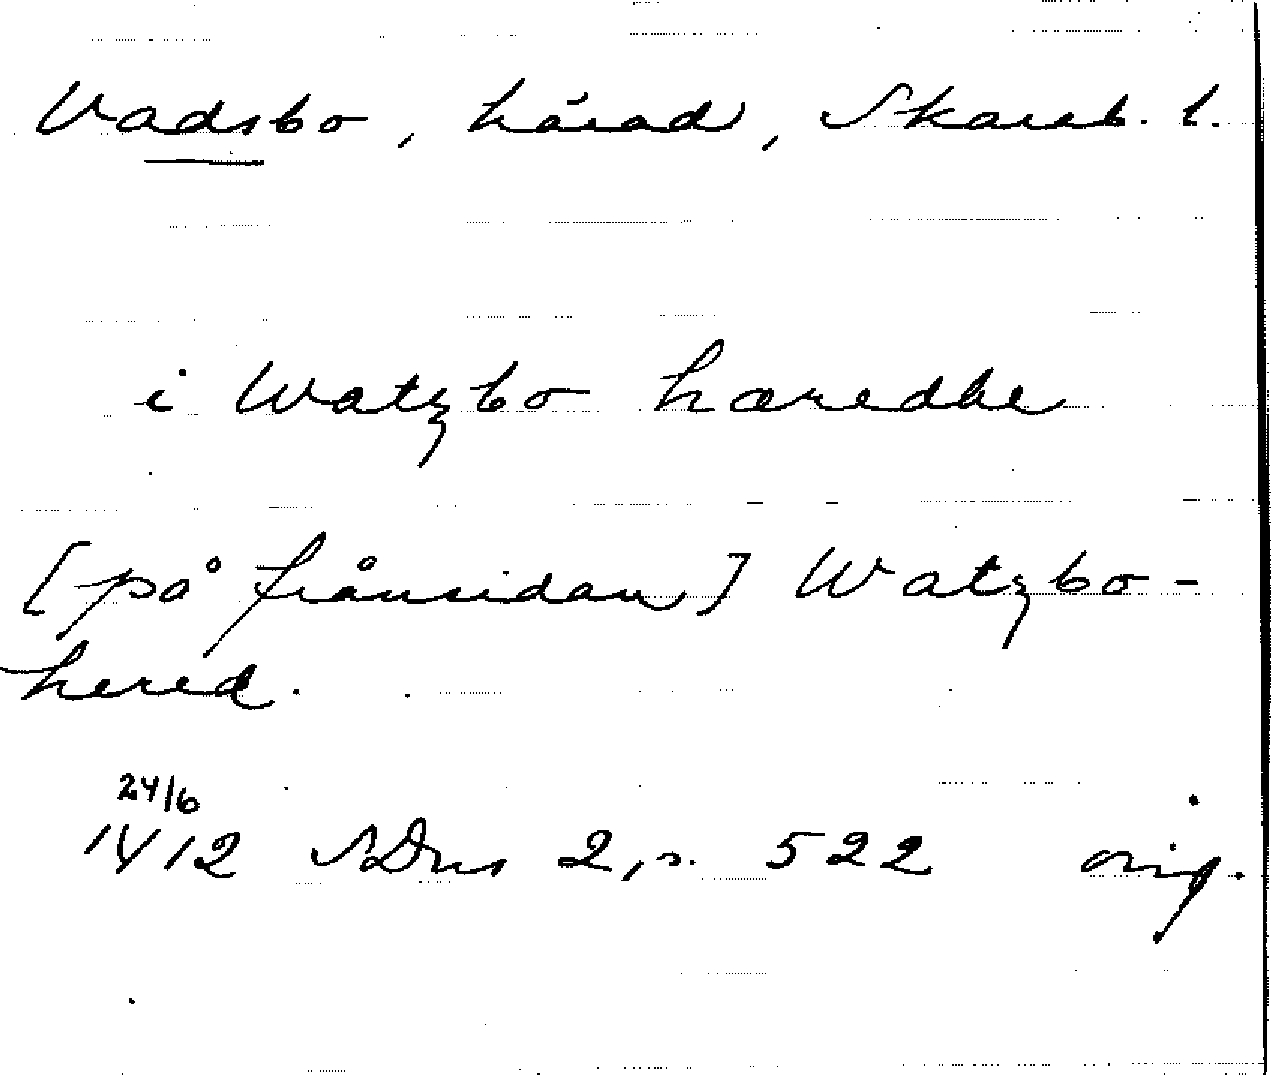 Vadsbo, härad, Skarab. l.
i Watzbo hæredhe
[på frånsidan] Watzbo-
hered.
24/6
1412 SDns 2, s. 522 orig.